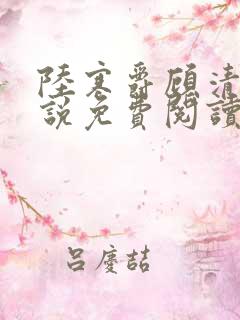 陸寒爵顧清
說免費閱讀
呂慶喆